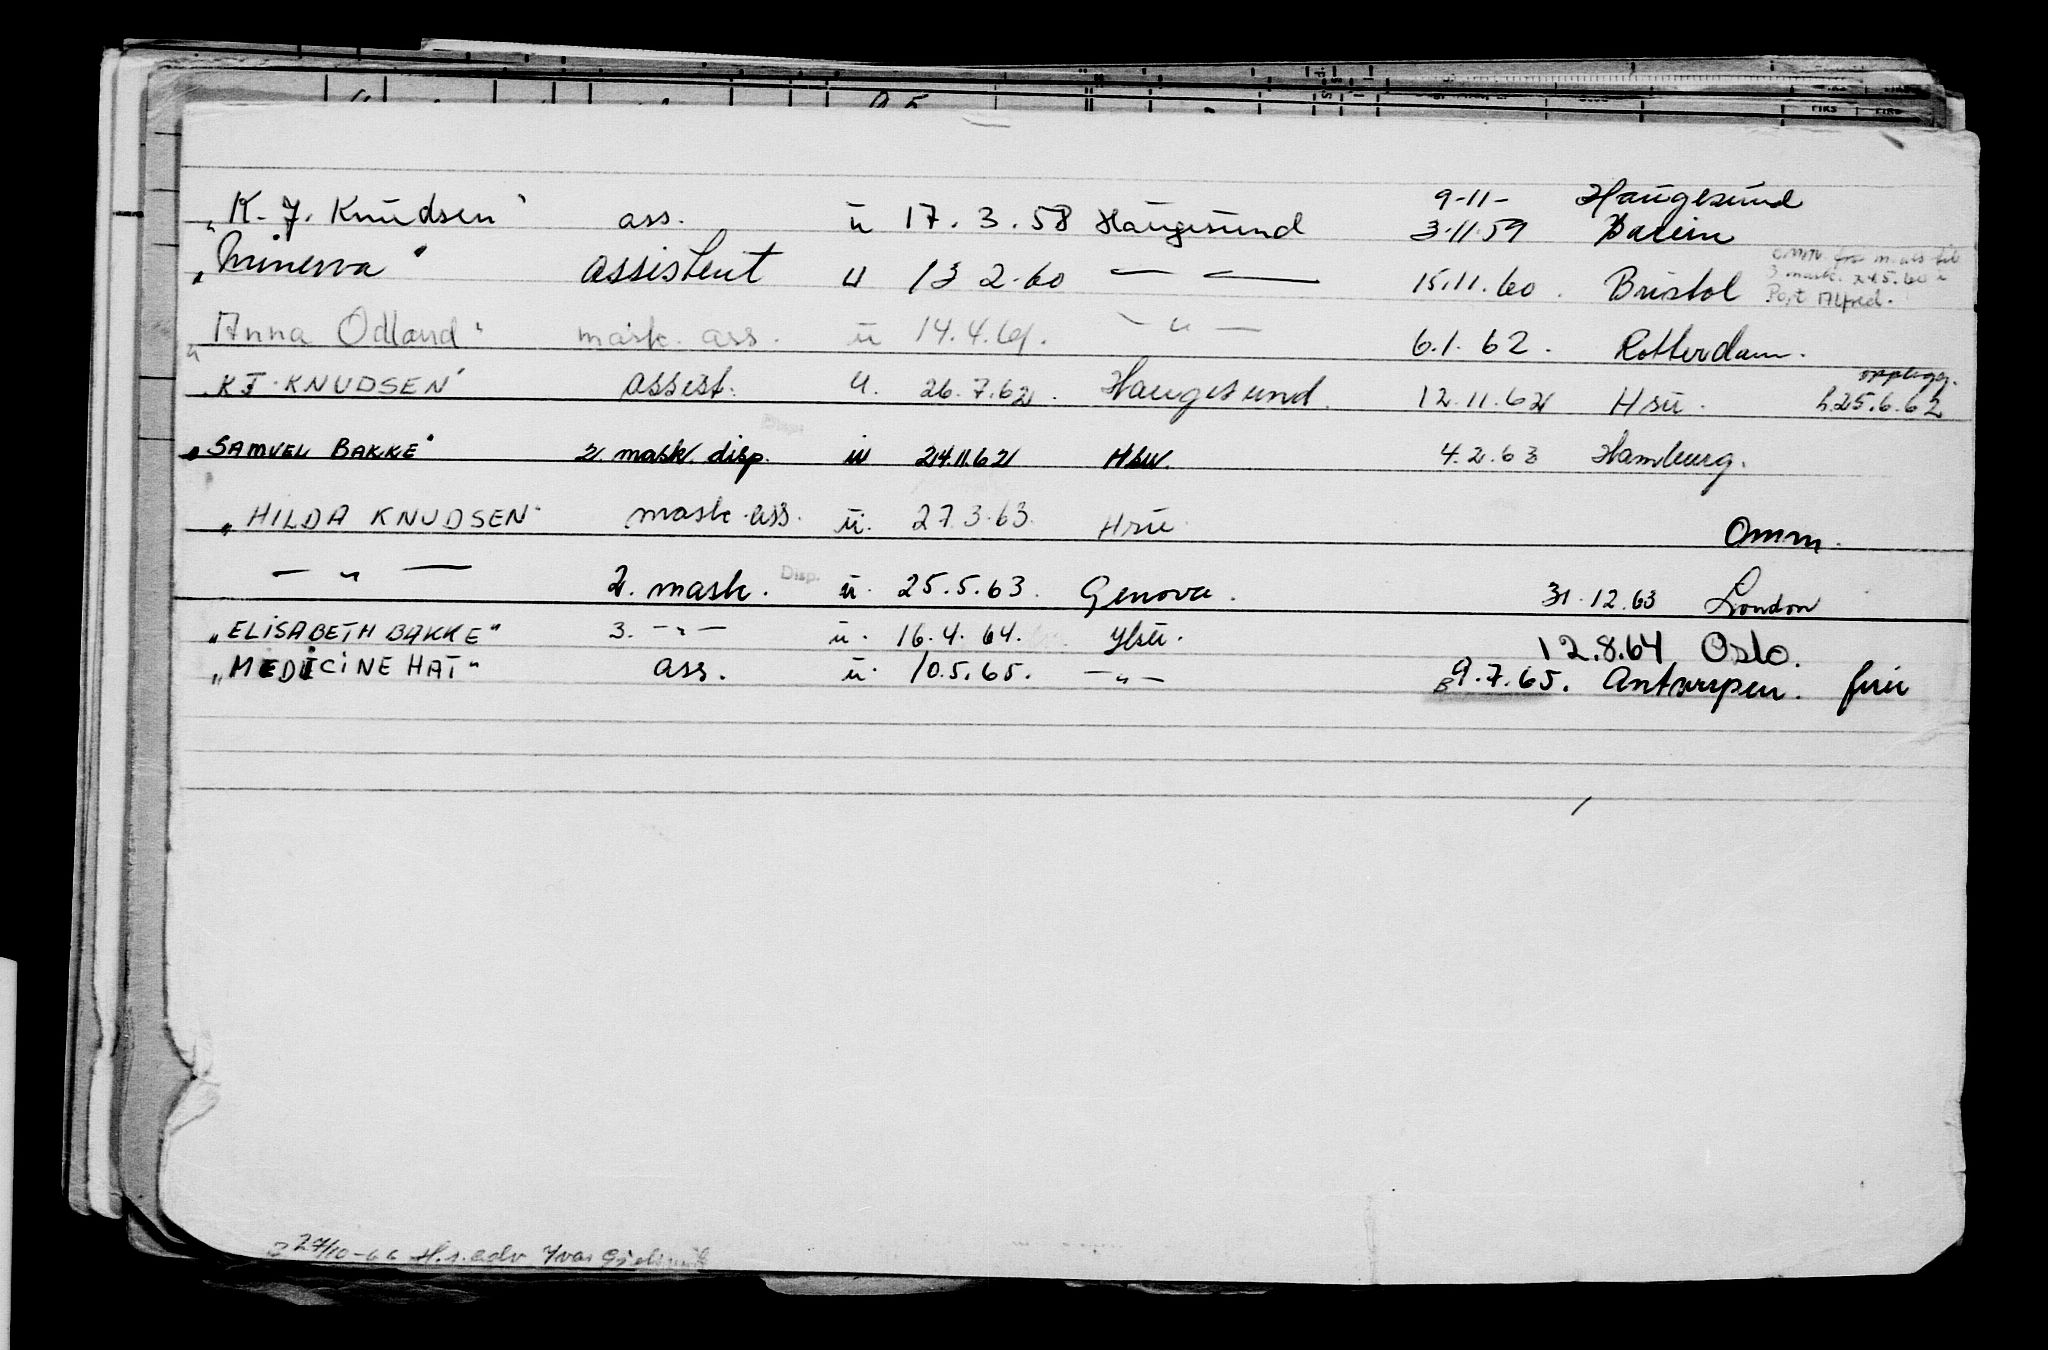 9-11- Haugesund
"K. J. Knudsen" ass. u 17.3.58 Haugesund 3.11.59 Barein
"Minerva" assistent u 13 2.60 — — 15.11.60. Bristol
3 mask. 24.5.60 i
Port Alfred.
"Anna Odland" mask. ass. u 14.4.61. — " — 6.1.62. Rotterdam.
opplegg.
"KJ. KNUDSEN" assist. u. 26.7.62. Haugesund. 12.11.62 Hsu. h.25.6.62
"SAMUEL BAKKE" 2. mask. disp. u 24.11.62 Hsu. 4.2.63 Hamburg.
"HILDA KNUDSEN" mask. ass. u. 27.3.63. Hsu Omm.
— " — 2. mask. Disp. u. 25.5.63. Genova. 31.12.63 London
"ELISABETH BAKKE" 3. — " — u. 16.4.64. Hsu. 12.8.64 Oslo.
"MEDICINE HAT" ass. u. 10.5.65. — " — 9.7.65. Antwerpen. frir
27/10-66 H.r.adv Yvar